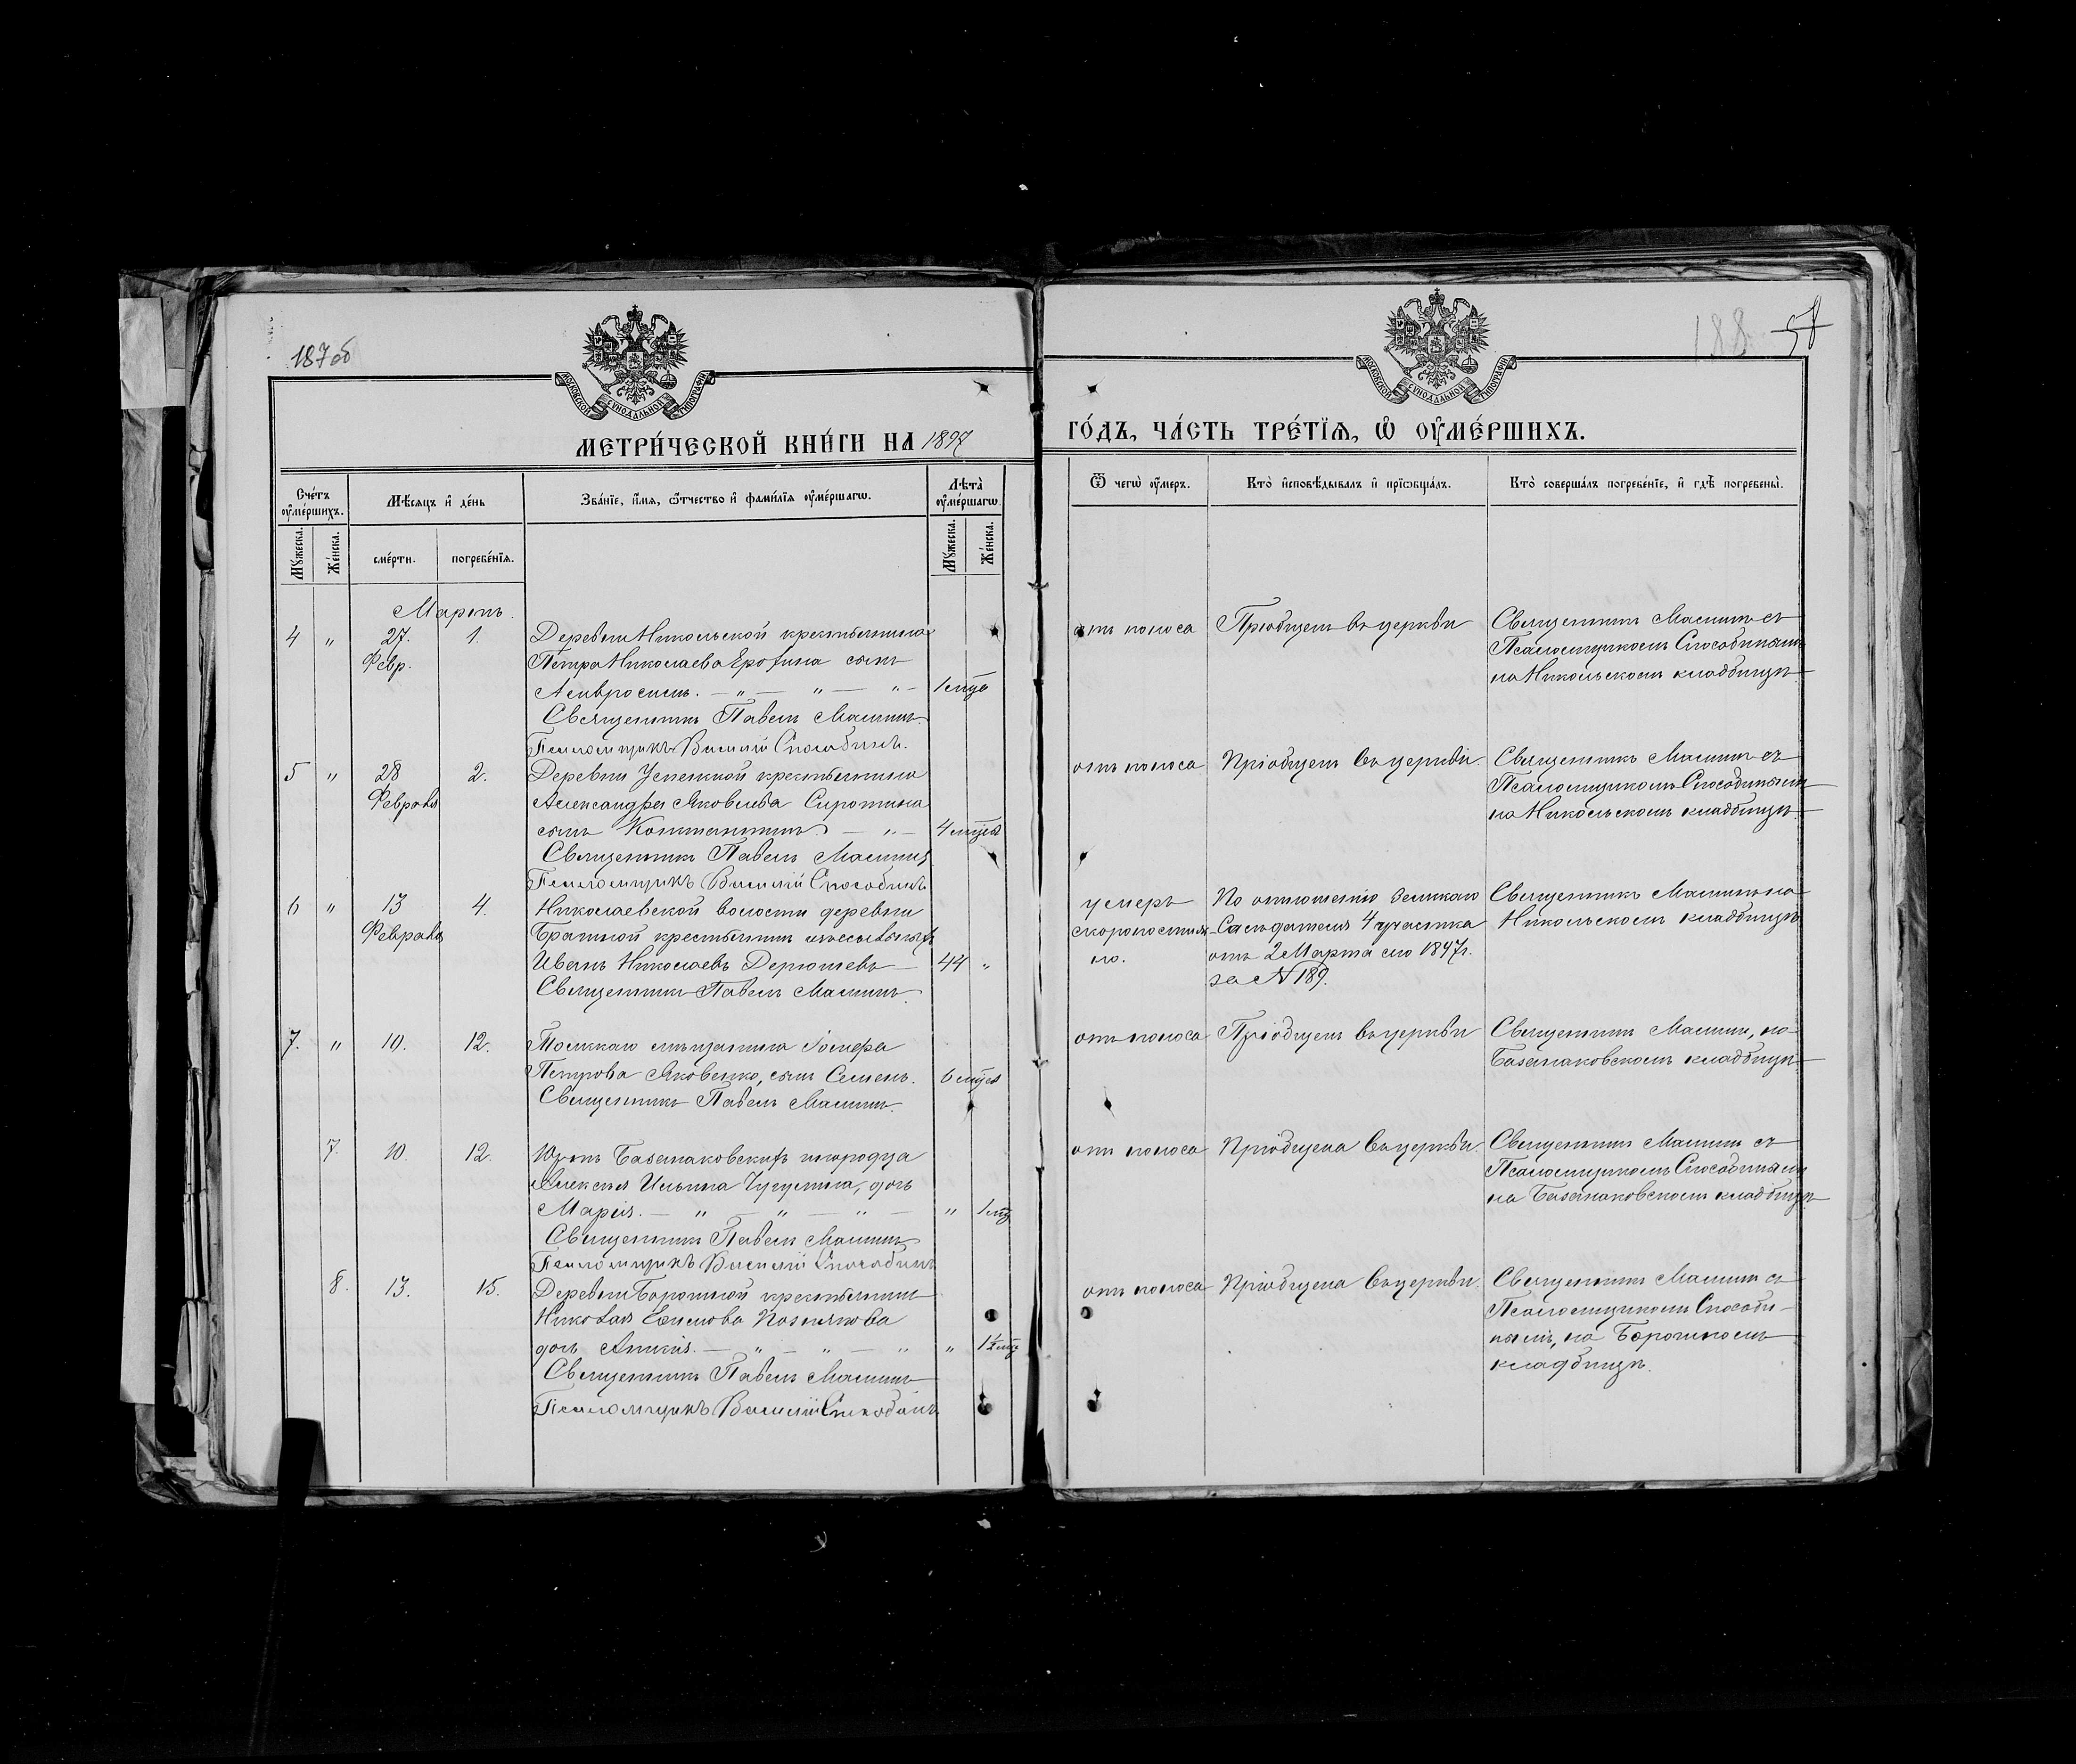 187об
188
МОСКОВСКОЙ СУНОДАЛЬНОЙ ТИПОГРАФІИ
МОСКОВСКОЙ СУНОДАЛЬНОЙ ТИПОГРАФІИ
МЕТРИ́ЧЕСКОЙ КНИ́ГИ НА 1897
ГО́ДЪ, ЧА́СТЬ ТРЕ́ТЇѦ, Ѡ҆ ОУ҆МЕ́РШИХЪ.
Сче́тъ оу҆ме́ршихъ.
Мꙋжеска.
Же́нска.
Мѣ́сѧцъ и҆ де́нь
сме́рти.
погребе́нїѧ.
Зва́нїе, и҆́мѧ, ѻ҆́тчество и҆ фами́лїѧ оу҆ме́ршагѡ.
Лѣта̀ оу҆ме́ршагѡ.
Мꙋжеска.
Же́нска.
Ѿ чегѡ̀ оу҆́меръ.
Кто̀ и҆сповѣ́дывалъ и҆ прїѡбща́лъ.
Кто̀ соверша́лъ погребе́нїе, и҆ гдѣ̀ погребены̀.
Мартъ.
4 " 27. 1. Деревни Никольской крестьянина
Февр. Петра Николаева Ерофина сынъ
Амвросимъ. — " — " — " — 1 мца
Священникъ Павелъ Машинъ
Псаломщикъ Василій Способинъ.
отъ поноса Пріобщенъ въ церкви Священникъ Машинъ съ
Псаломщикомъ Способинымъ
на Никольскомъ кладбищѣ.
5 " 28 2. Деревни Успенкиой крестьянина
Февраля Александра Яковлева Сиротина
сынъ Константинъ — " — 4 мцевъ
Священникъ Павелъ Машинъ
Псаломщикъ Василій Способинъ
отъ поноса Пріобщенъ въ церкви. Священникъ Машинъ съ
Псаломщикомъ Способинымъ
на Никольскомъ кладбищѣ.
6 " 13 4. Николаевской волости деревни
Февраля крестьянинъ изъ ссыльныхъ
Иванъ Николаевъ — 44 "
Священникъ Павелъ Машинъ.
умеръ
скоропостиж-
но.
По отношенію Земскаго
Засѣдателя 4 участка
отъ 2 Марта сего 1897 г.
за № 189.
Священникъ Машинъ на
Никольскомъ кладбищѣ
7. " 10. 12. Томскаго мѣщанина Іосифа
Петрова Яковенко, сынъ Семенъ. 6 мцев
Священникъ Павелъ Машинъ.
отъ поноса Пріобщенъ въ церкви Священникъ Машинъ, на
Базанаковскомъ кладбищѣ.
7. 10. 12. Юртъ Базанаковскихъ инородца
Алексѣя Ильина дочь
Марія. — " — " — " — " 1 мц
Священникъ Павелъ Машинъ
Псаломщикъ Василій Способинъ
отъ поноса Пріобщена въ церкви. Священникъ Машинъ съ
Псаломщикомъ Способинымъ
на Базанаковскомъ кладбищѣ
8. 13. 15. Деревни крестьянина
Николая Ефимова Познякова
дочь — " — " — " " 1½ мц
Священникъ Павелъ Машинъ
Псаломщикъ Василій Способинъ
отъ поноса Пріобщена въ церкви. Священникъ Машинъ съ
Псаломщикомъ Способи-
нымъ, на
кладбищѣ.